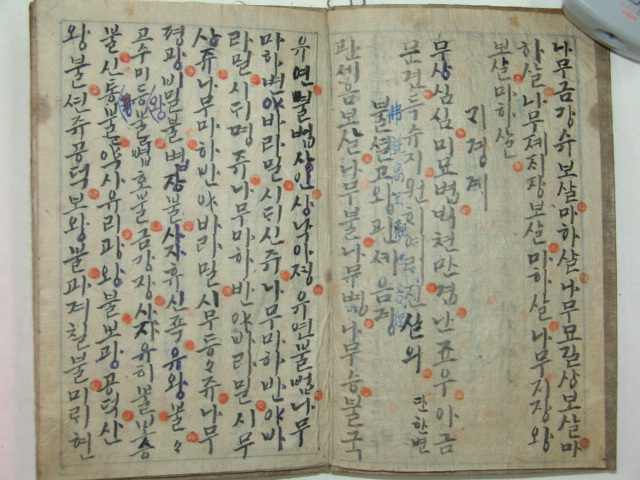 나무금강슈보살마하살나무묘길상보살마
하살나무졔지장보살마하살나무지장왕
보살마하살
긔경게
무상심심미묘법백천만겁난죠우아금
문견득슈지원
살의
단한번
불셜고왕관셰음경
관셰음보살나무불나무법나무승불국
유연불법상인상낙아졍유연불법나무
마하변야바라밀시디신쥬나무마하반야바
라밀시디명쥬나무마하반야바라밀시무
상쥬나무마하반야바라밀시무등々쥬나무
비밀불법장불사자후신죡유왕불々
고수미등불법호불금강장사자유희불보승
불신통불약사유리광왕불보광공덕산
왕불션쥬공덕보왕불과거칠불미래현